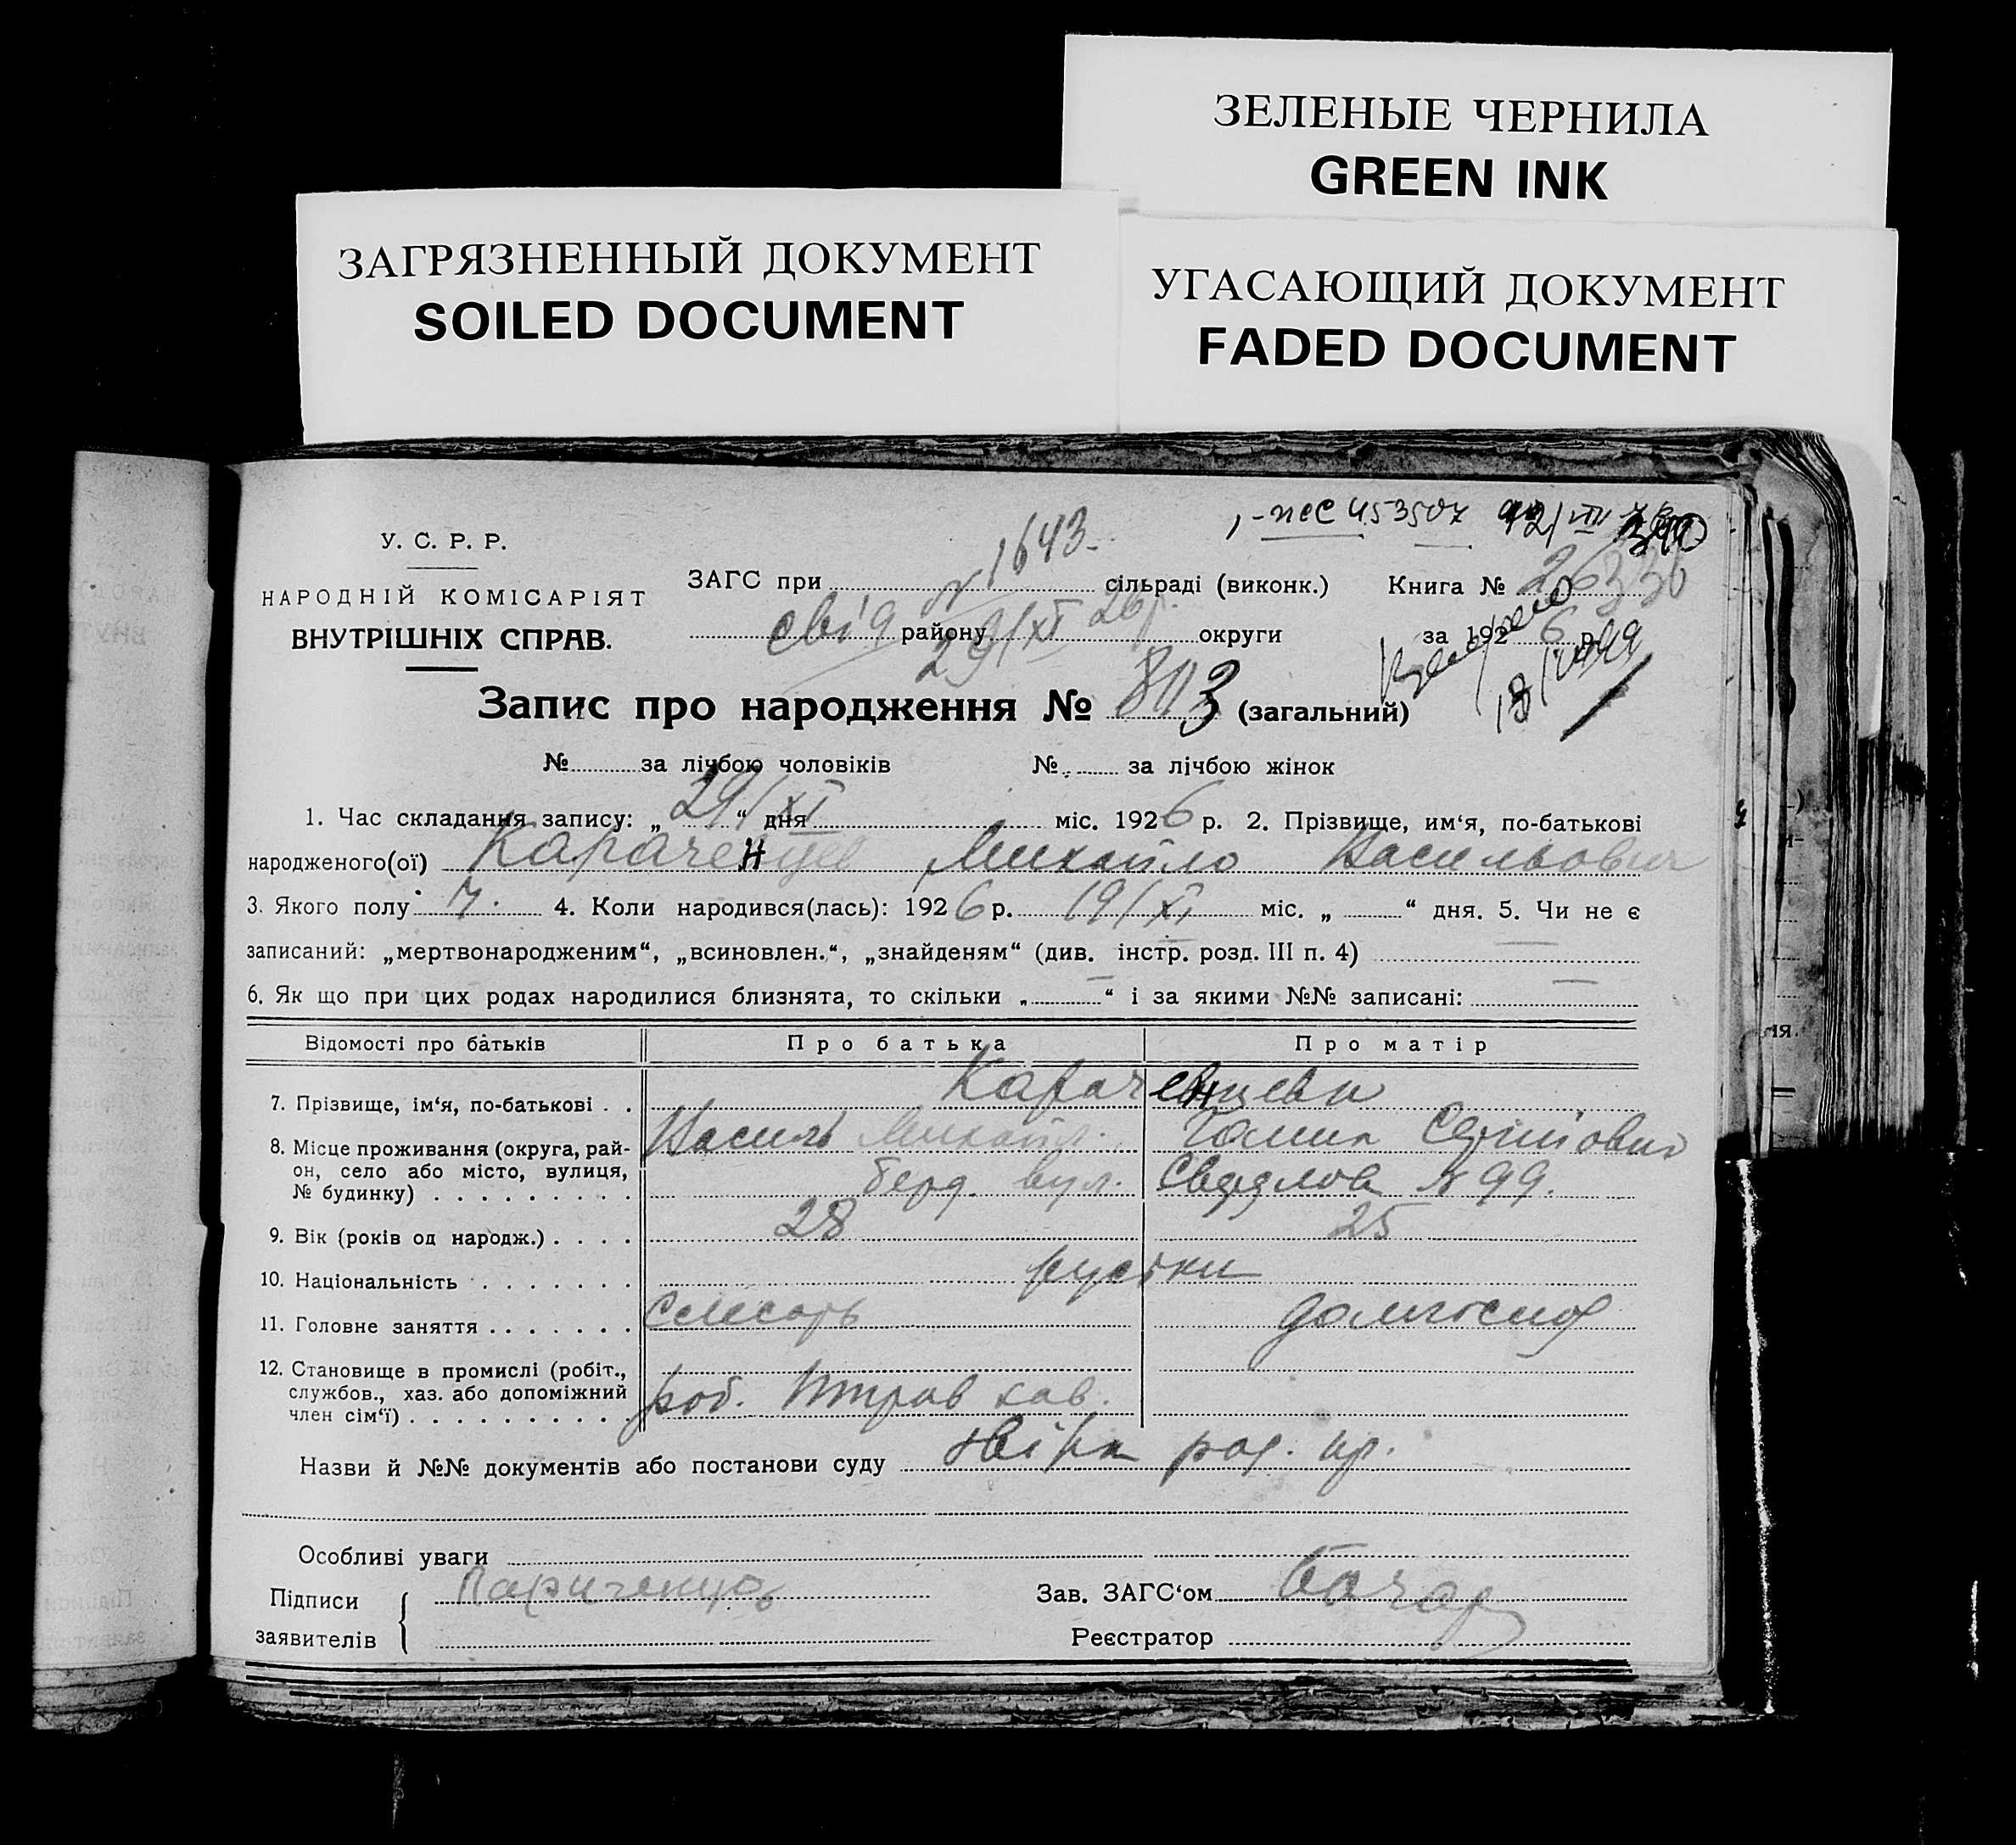 ЗЕЛЕНЫЕ ЧЕРНИЛА
GREEN INK
ЗАГРЯЗНЕННЫЙ ДОКУМЕНТ
SOILED DOCUMENT
УГАСАЮЩИЙ ДОКУМЕНТ
FADED DOCUMENT
У. С. Р. Р.
НАРОДНІЙ КОМІСАРІЯТ
ВНУТРІШНІХ СПРАВ.
1643
ЗАГС при сільраді (виконк.) Книга №
району округи за 1926 р.
29/XI 26 р.
Запис про народження № 803 (загальний)
№ за лічбою чоловіків № за лічбою жінок
1. Час складання запису: „29/XI“ дня міс. 1926 р. 2. Прізвище, им‘я, по-батькові
народженого(ої) Караченцев Михайло Васильович
3. Якого полу ч. 4. Коли народився(лась): 1926 р. 19/XI міс. „ “ дня. 5. Чи не є
записаний: „мертвонародженим“, „всиновлен.“, „знайденям“ (див. інстр. розд. III п. 4)
6. Як що при цих родах народилися близнята, то скільки „ “ і за якими №№ записані:
Відомості про батьків Про батька Про матір
7. Прізвище, ім‘я, по-батькові . . Караченцеви
8. Місце проживання (округа, рай- Василь Михайл.
он, село або місто, вулиця,
№ будинку) . . . . . . . . . вул. Свердлова № 99.
9. Вік (років од народж.) . . . . 28 25
10. Національність . . . . . . .
11. Головне заняття . . . . . . . Слесарь домгосп
12. Становище в промислі (робіт.,
службов., хаз. або допоміжний
член сім‘ї) . . . . . . . . . . роб.
Назви й №№ документів або постанови суду
Особливі уваги
Підписи
заявителів
Зав. ЗАГС‘ом
Реєстратор